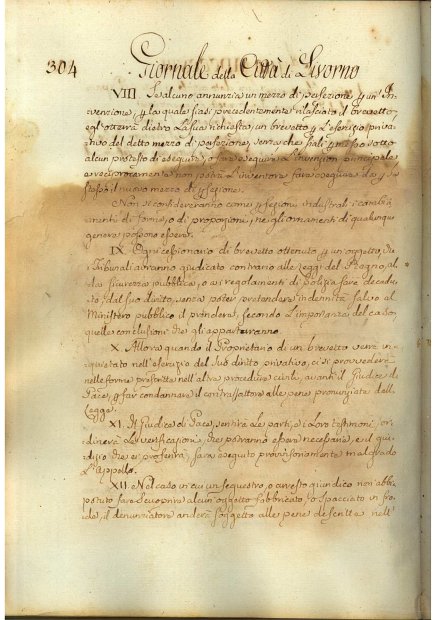 304 Giornale della Città di Livorno
VIII. Se alcuno annunzia un mezzo di perfezione p un In-
venzione, p la quale siasi precedentemente rilasciato il brevetto,
egl'otterrà dietro la sua richiesta, un brevetto p l'esercizio priva-
tivo del detto mezzo di perfezione, senza che gli sia p messo sotto
alcun pretesto di eseguire, o fare eseguire l'invenzion principale
e reciprocamente non potrà l'inventore fare eseguire da p se
stesso il nuovo mezzo di p fezione.
Non si considereranno come p fezioni industriali i cambia-
menti di forme, o di proporzioni, nè gli ornamenti di qualunque
genere possono essere.
IX. Ogni cessionario di brevetto ottenuto p un oggetto, che
i Tribunali avranno giudicato contrario alle Leggi del Regno, al-
la sicurezza pubblica, o ai regolamenti di polizia sarà decadu-
to dal suo diritto, senza poter pretendere indennità salvo al
Ministero pubblico di prendere, secondo l'importanza del caso,
quelle conclusioni che gli apparterranno.
X. Allora quando il Proprietario di un brevetto verrà in-
quietato nell'esercizio del suo diritto privativo, ci si provvederà
nelle forme prescritte nell'altre procedure civili, avanti il Giudice di
Pace, p far condannare il contraffattore alle pene pronunziate dalla
Legge.
XI. Il Giudice di Pace, sentirà le parti, e i loro testimoni, or-
dinerà le verificazioni, che potranno esser necessarie, e il giu-
dizio che ei proferirà, sarà eseguito provvisoriamente malgrado
l'Appello.
XII. Nel caso in cui un sequestro, o arresto giuridico non abbia
potuto fare scuoprire alcun oggetto fabbricato, o spacciato in fro-
de, il denunziatore anderà soggetto alle pene descritte nell'